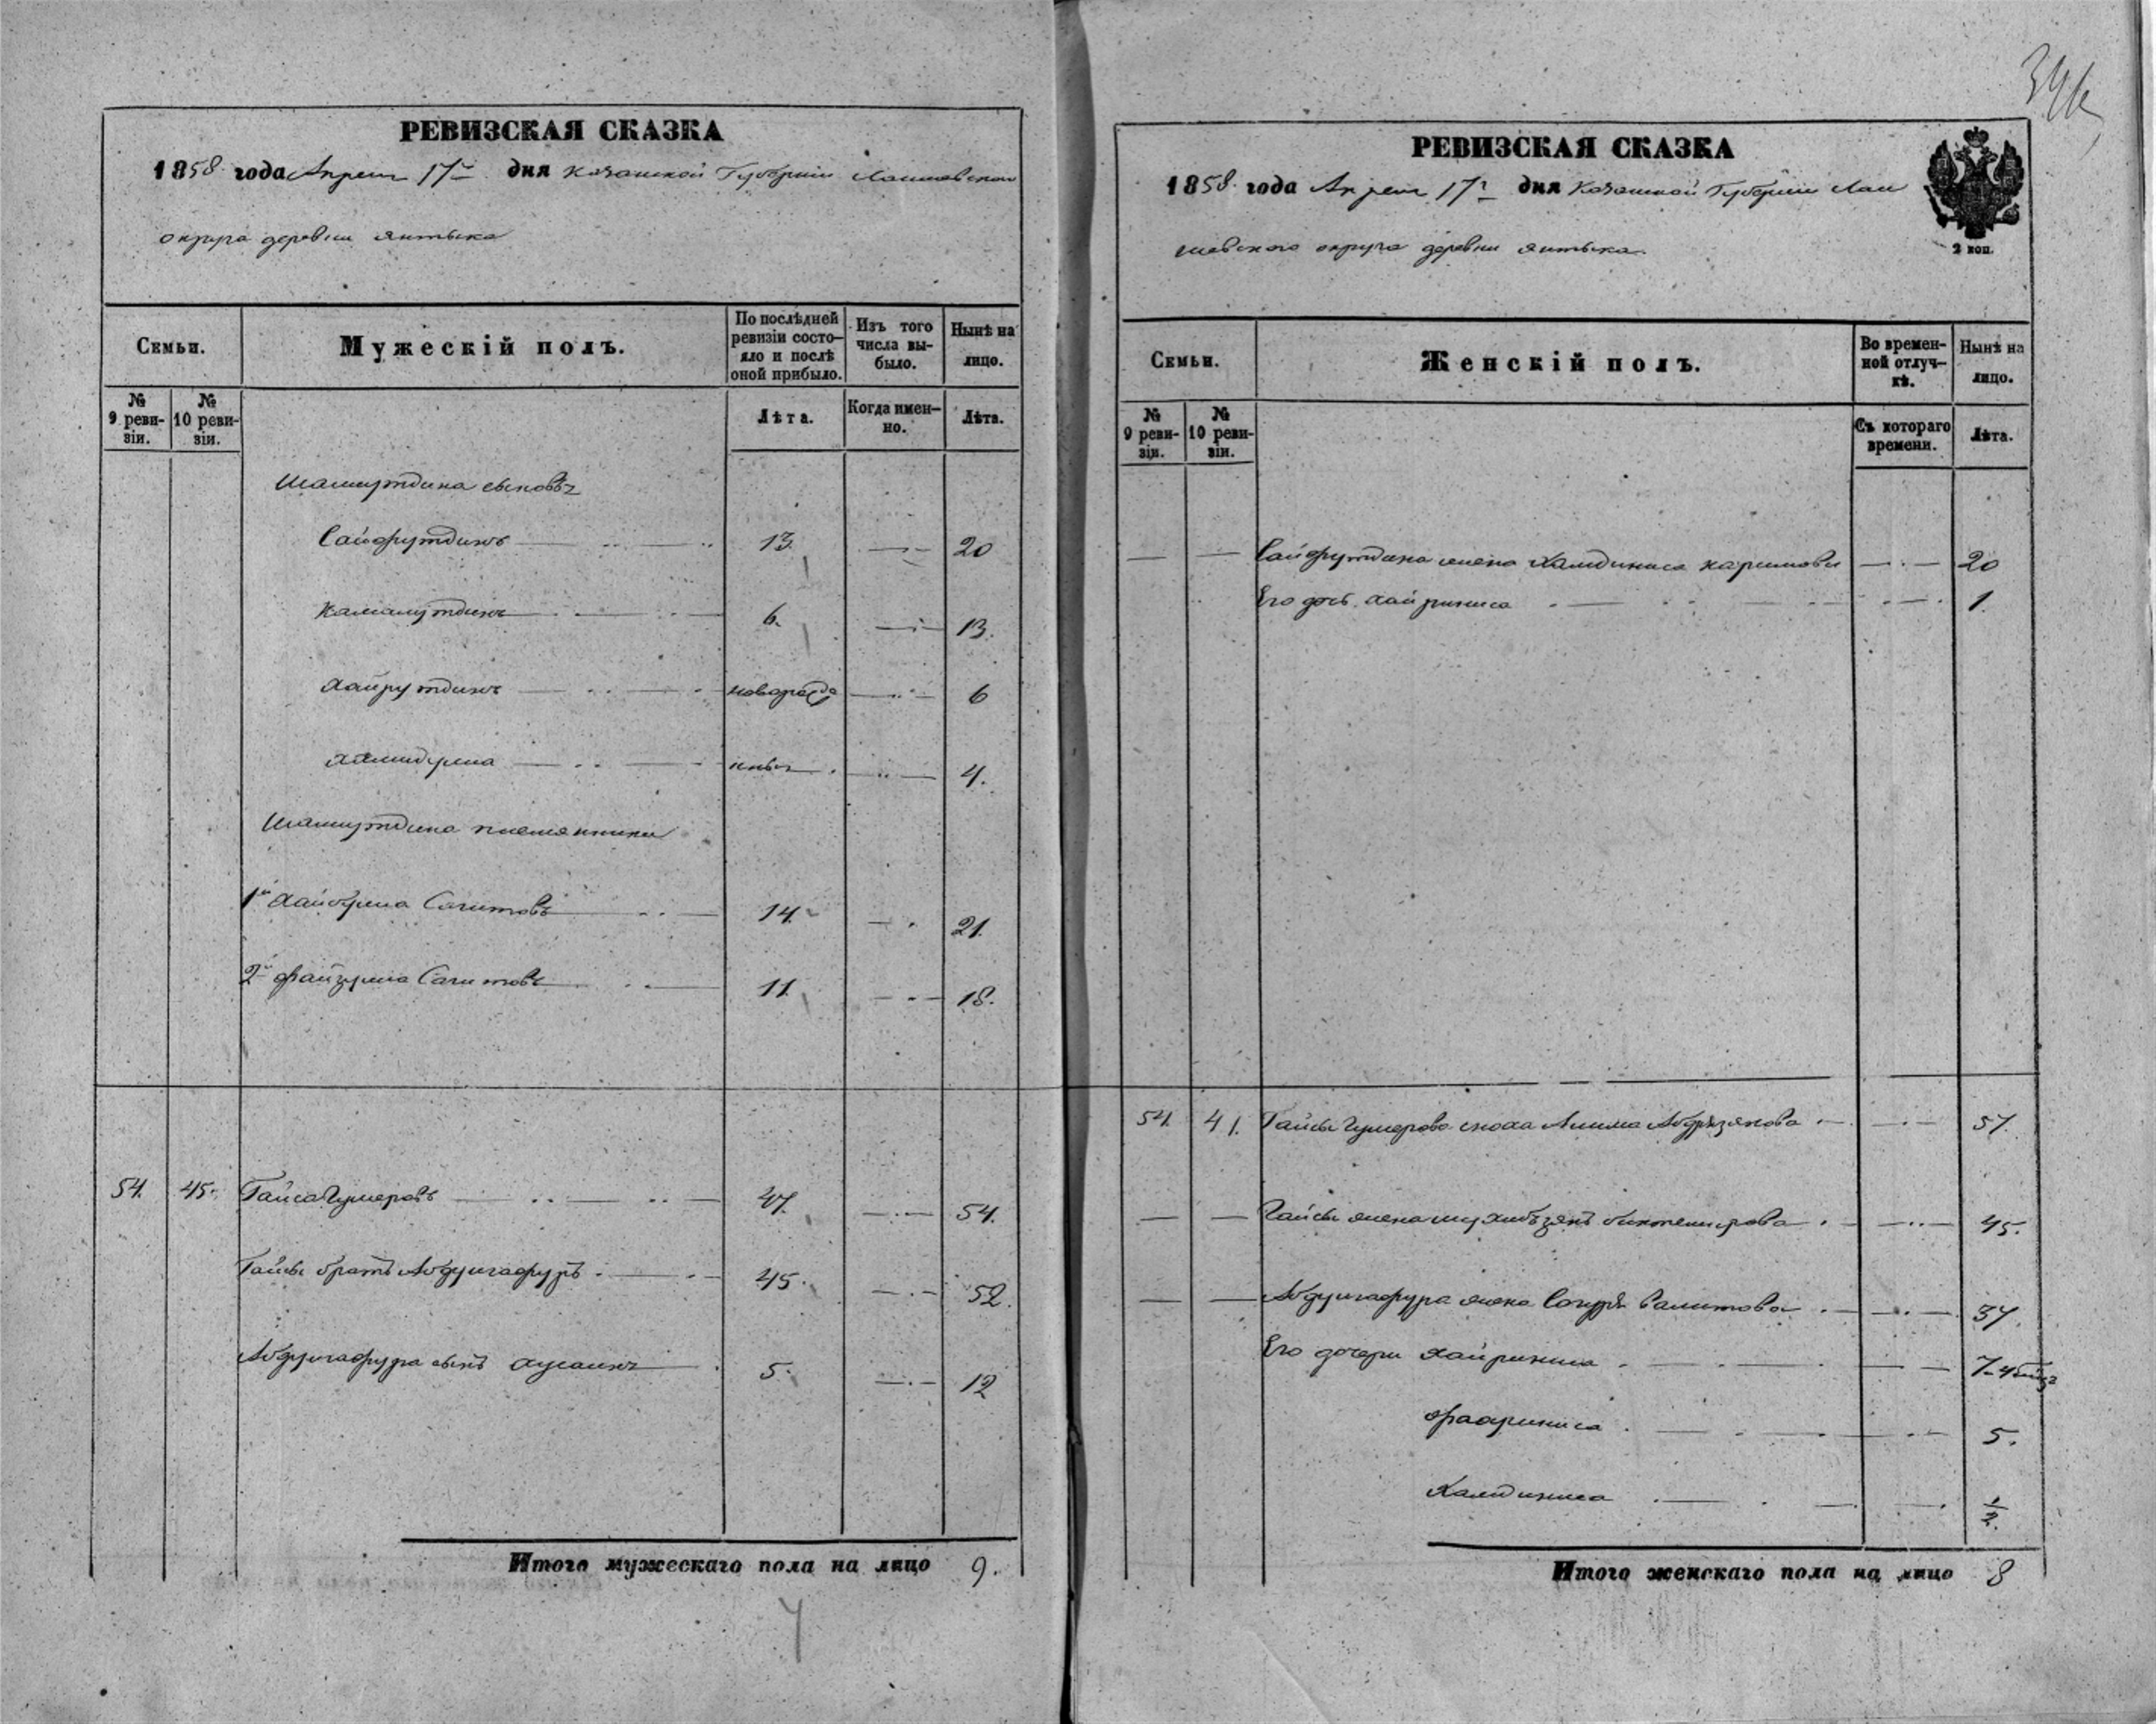 РЕВИЗСКАЯ СКАЗКА
1858 года Апреля 17го дня Казанской Губернiи Лаишевского
округа деревни Янтыка
Семьи. Мужескiй полъ. По послѣдней ревизiи состо-яло и послѣ оной прибыло. Изъ того числа вы-было. Нынѣ на лицо.
№ 9 реви-зiи. № 10 реви-зiи. Лѣта. Когда имен-но. Лѣта.
Шамшутдина сыновья
Сайфутдинъ 13. 20
Камалутдинъ 6. 13.
Хайрутдинъ 6
4.
Шамшутдина племянники
1й Хайбулла Сагитовъ 14. 21.
2й Файзулла Сагитовъ 11. 18.
54. 45. Гайса Гумеровъ 47. 54.
Гайсы братъ Абдулгафуръ 45. 52.
Абдулгафура сынъ 5. 12
Итого мужескаго пола на лицо 9.
РЕВИЗСКАЯ СКАЗКА
1858 года Апреля 17го дня Казанской Губернiи Лаи
шевского округа деревни Янтыка
2 коп.
Семьи. Женскiй полъ. Во времен-ной отлуч-кѣ. Нынѣ на лицо.
№ 9 реви-зiи. № 10 реви-зiи. Съ котораго времени. Лѣта.
Сайфутдина жена Каримова 20
Его дочь Хайриниса 1.
54. 41. Гайсы Гумерова сноха Алима 57.
Гайсы жена Биктемирова 45.
Абдулгафура жена Валитова 37.
Его дочери Хайриниса 7
5.
½.
Итого женскаго пола на лицо 8